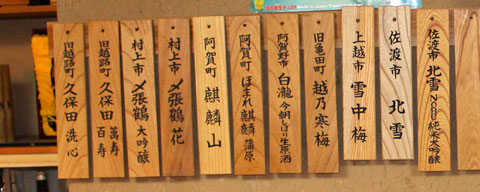 佐渡市 北雪 NOBU 純米大吟醸
佐渡市 北雪
上越市 雪中梅
旧亀田町 越乃寒梅
阿賀野市 白瀧 今朝しぼり生原酒
阿賀町 ほまれ麒麟 蒲原
阿賀町 麒麟山
村上市 〆張鶴 花
村上市 〆張鶴 大吟醸
旧越路町 久保田 萬寿
旧越路町 久保田 百寿
旧越路町 久保田 洗心